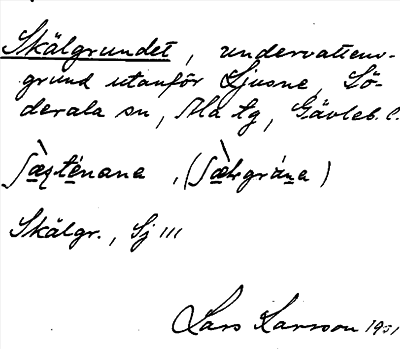 Skälgrundet, undervattens-
grund utanför Ljusne, Sö-
derala sn, Ala tg, Gävleb. l.
Skälgr., Sj III
Lars Larsson 1951